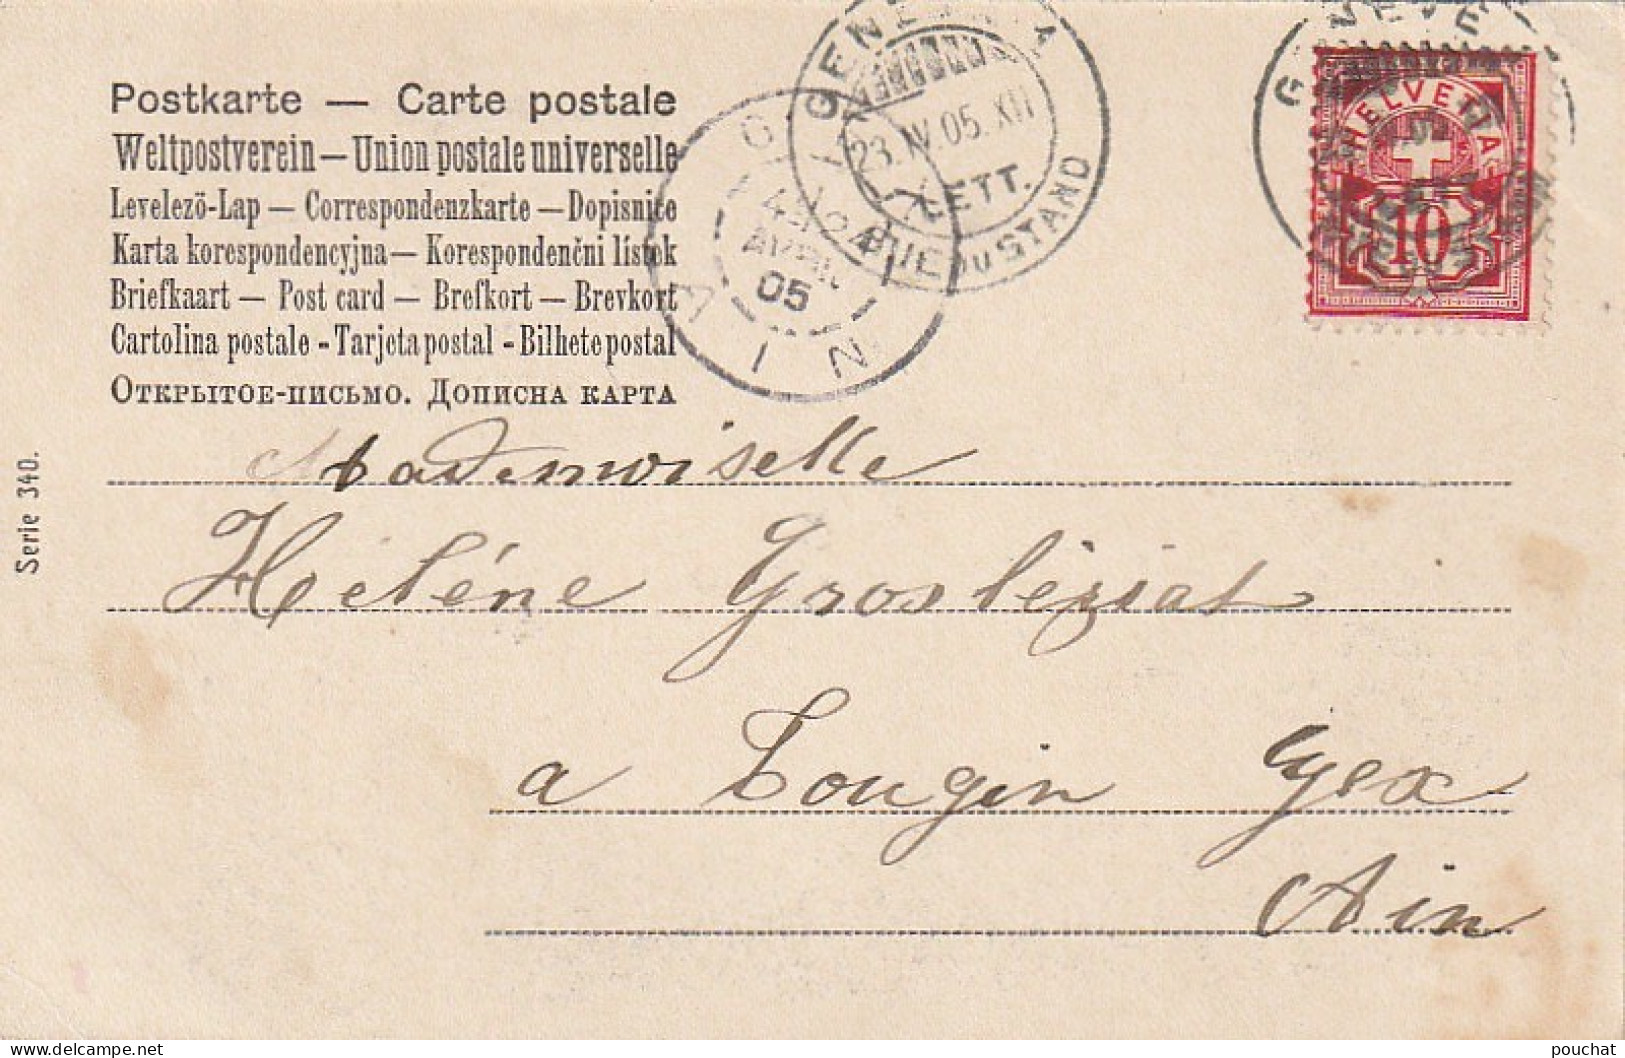 Postkarte — Carte postale
Weltpostverein — Union postale universelle
Levelező-Lap — Correspondenzkarte — Dopisnice
Karta korespondencyjna — Korespondenční lístek
Briefkaart — Post card — Brefkort — Brevkort
Cartolina postale - Tarjeta postal - Bilhete postal
Открытое-письмо. Дописна карта
Serie 340.
23.IV.05.XII
LETT.
RUE DU STAND
05
AIN
GENÈVE
HELVETIA
10
Mademoiselle
Heléne Grosléziat
a Lougin Gex
Ain
pouchat